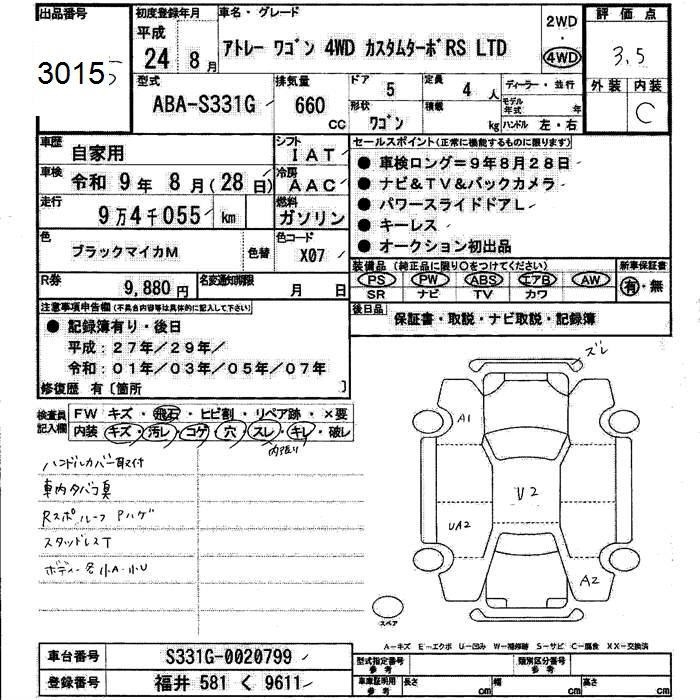 出品番号
30155
初度登録年月
平成
24 8月
車名・グレード
アトレー ワゴン 4WD カスタムターボRS LTD
2WD
・
4WD
評価点
3.5
外装 内装
C
型式
ABA-S331G
排気量
660
CC
ドア
5
定員
4 人
形状
ワゴン
積載
kg
ディーラー・並行
モデル年式 年
ハンドル 左・右
車歴
自家用
シフト
IAT
車検
令和 9年 8月(28日)
冷房
AAC
走行
9万4千055 km
燃料
ガソリン
色
ブラックマイカM
色替
色コード
X07
R券
9,880円
名変通知期限
月 日
セールスポイント(正常に機能するものに限ります)
● 車検ロング=9年8月28日
● ナビ&TV&バックカメラ
● パワースライドドアL
● キーレス
● オークション初出品
装備品 (純正品に限り○をつけてください)
PS PW ABS エアB AW
SR ナビ TV カワ
新車保証書
有・無
後日品
保証書・取説・ナビ取説・記録簿
注意事項申告欄(不具合内容等は具体的に記入して下さい)
● 記録簿有り・後日
平成:27年/29年/
令和:01年/03年/05年/07年
修復歴 有〔箇所 〕
検査員記入欄
FW キズ・飛石・ヒビ割・リペア跡・×要
内装 キズ・汚レ・コゲ・穴・スレ・キレ・破レ
内張り
ハンドルカバー取付
車内タバコ臭
Rスポ ルーフ Pハゲ
スタッドレスT
ボディー各小A・小U
ズレ
A1
U2
UA2
A2
スペア
A―キズ E―エクボ U―凹み W―補修跡 S―サビ C―腐食 XX―交換済
車台番号
S331G-0020799
登録番号
福井 581 く 9611
型式指定番号
参考
類別区分番号
参考
車庫証明用
参考
長さ cm
幅 cm
高さ cm